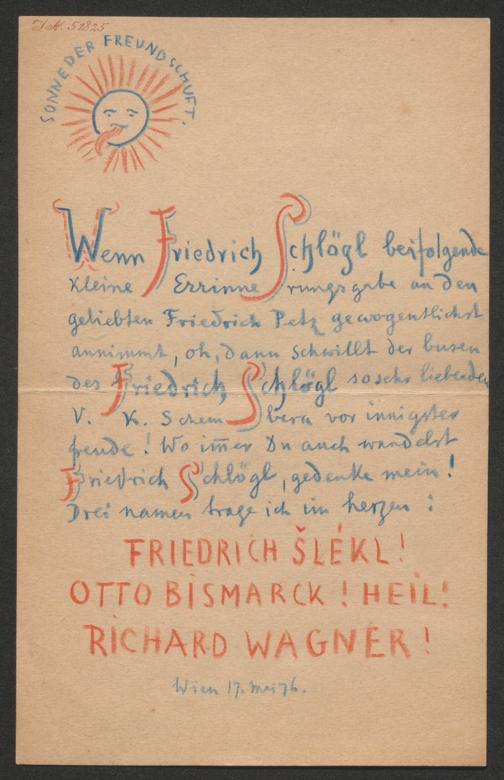 J.N. 51825
SONNE DER FREUNDSCHAFT.
Wenn Friedrich Schlögl beifolgende
kleine Errinnerungsgabe an den
geliebten Friedrich Petz gewogentlichst
annimmt, oh, dann schwillt der busen
des Friedrich Schlögl so sehr liebenden
V. K. Schembera vor innigster
freude! Wo im̄er Du auch wandelst
Friedrich Schlögl, gedenke mein!
Drei namen trage ich im herzen:
FRIEDRICH ŠLÉKL!
OTTO BISMARCK! HEIL!
RICHARD WAGNER!
Wien 17. Mei 76.